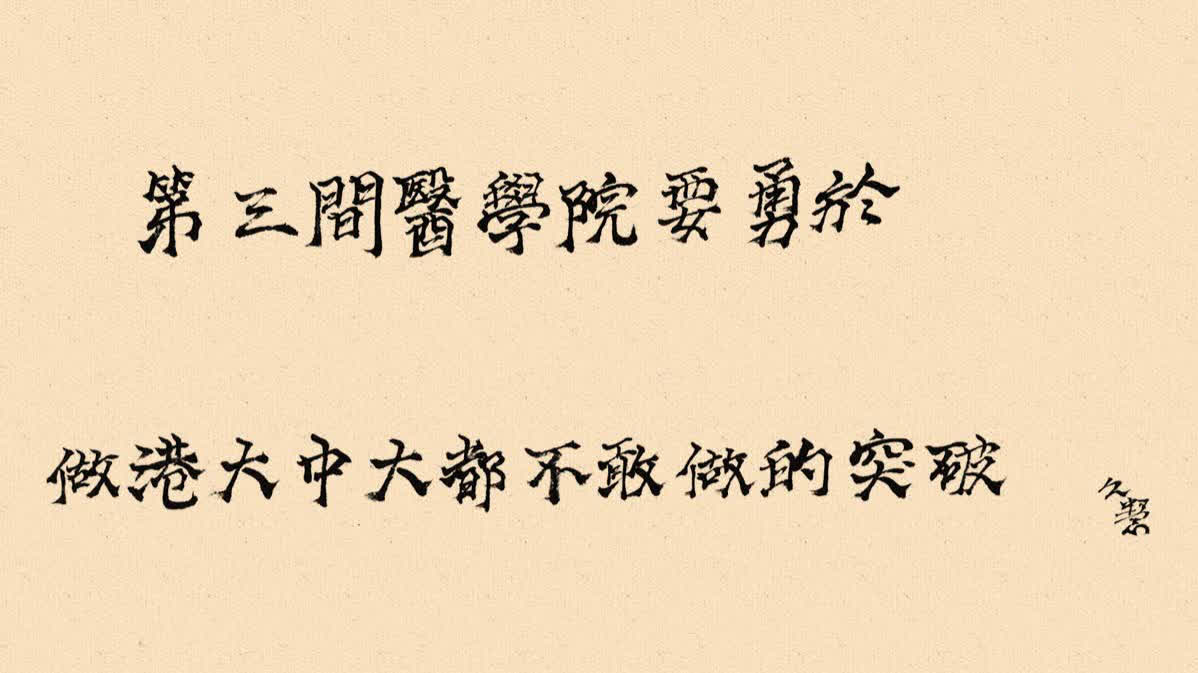 第三間醫學院要勇於
做港大中大都不敢做的突破
久繫